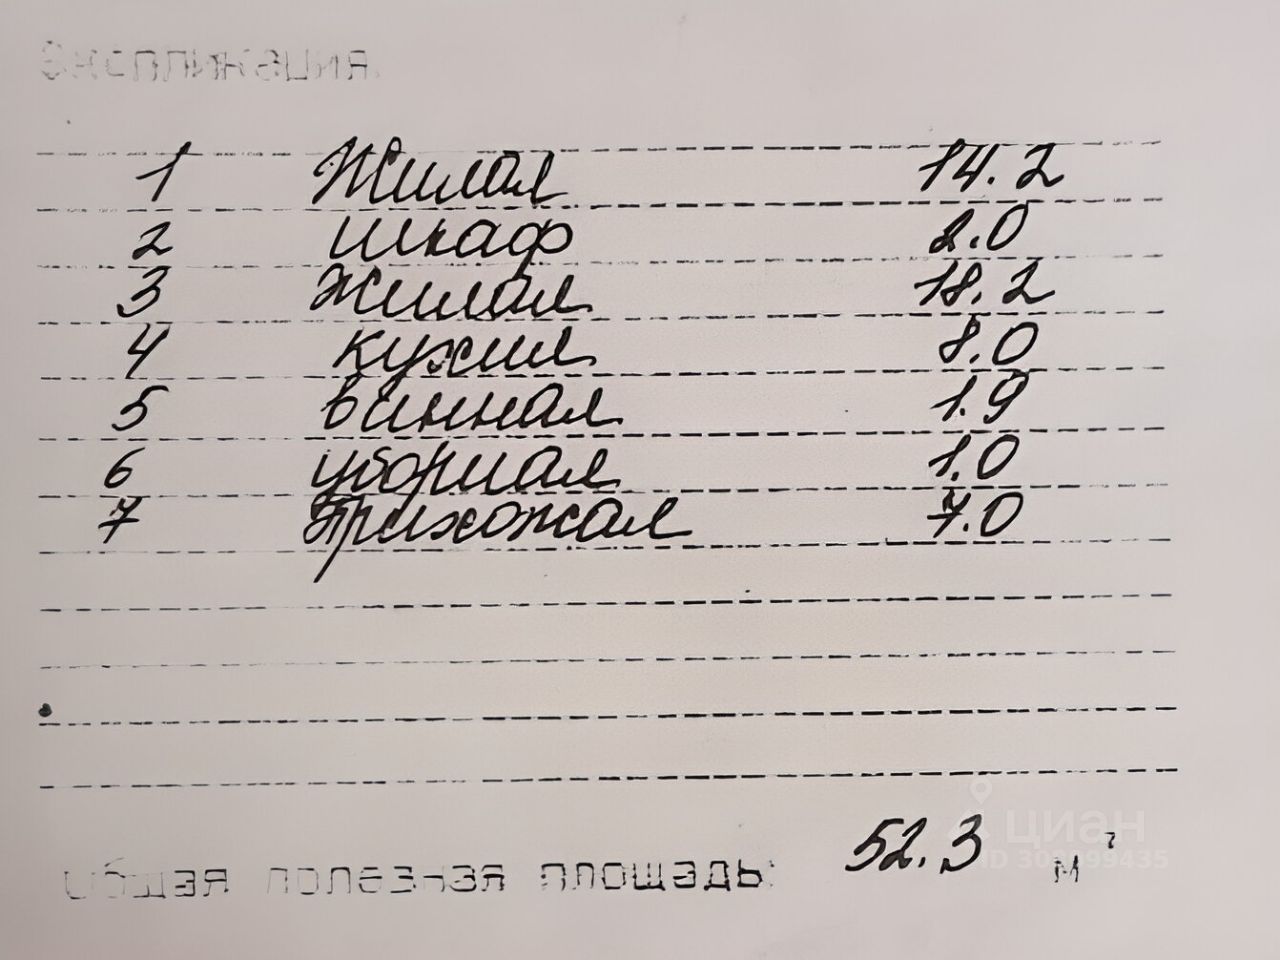 ЭКСПЛИКАЦИЯ
1 Жилая 14.2
2 шкаф 2.0
3 Жилая 18.2
4 кухня 8.0
5 ванная 1.9
6 уборная 1.0
7 Прихожая 7.0
Общая полезная площадь: 52.3 м²
циан